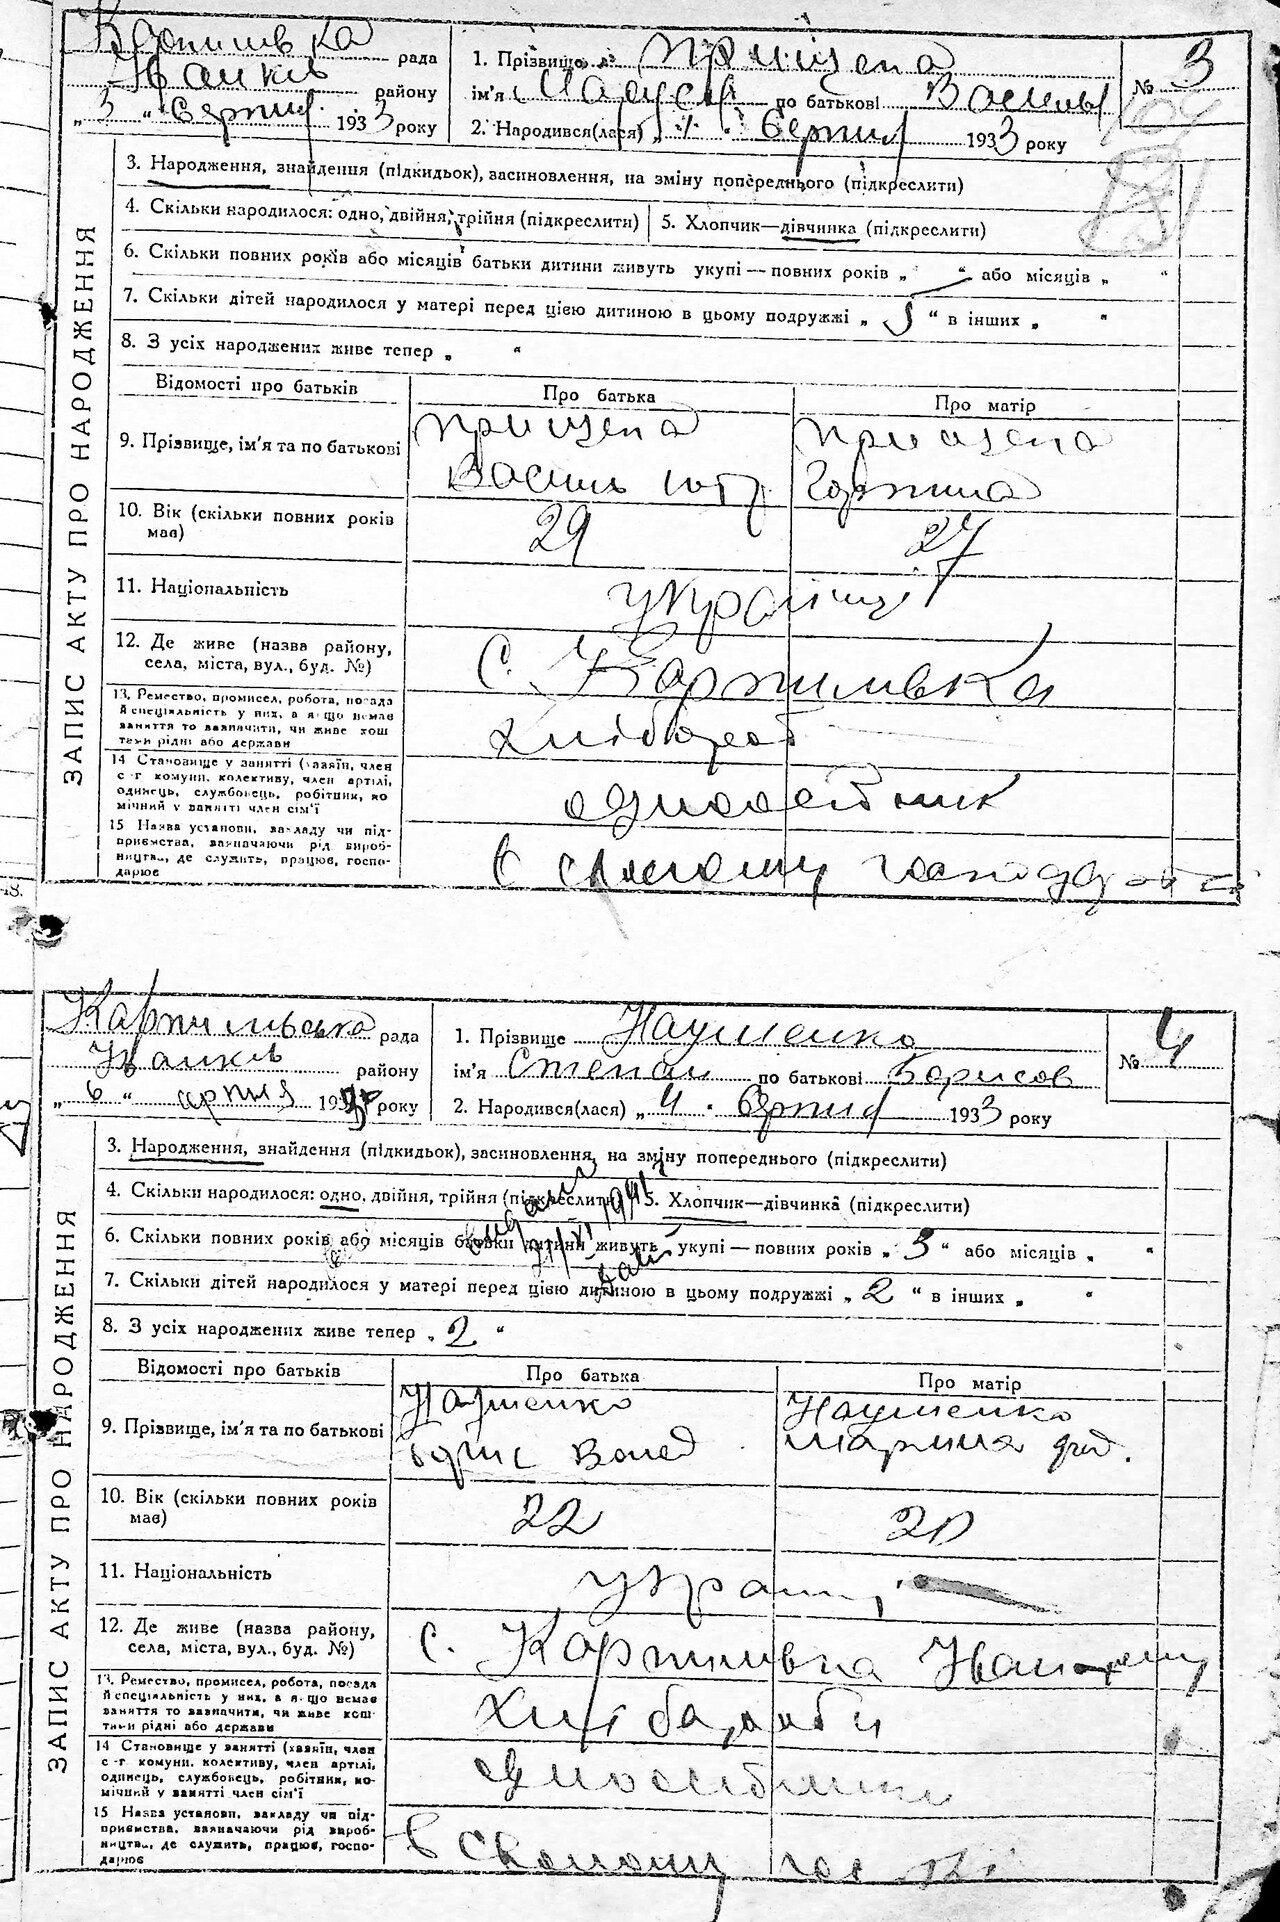 рада
Іванків району
„3“ серпня 1933 року
1. Прізвище Прищепа
ім'я по батькові Василів
2. Народився(лася) „1“ Серпня 1933 року
№ 3
ЗАПИС АКТУ ПРО НАРОДЖЕННЯ
3. Народження, знайдення (підкидьок), засиновлення, на зміну попереднього (підкреслити)
4. Скільки народилося: одно, двійня, трійня (підкреслити) 5. Хлопчик—дівчинка (підкреслити)
6. Скільки повних років або місяців батьки дитини живуть укупі — повних років „ “ або місяців „ “
7. Скільки дітей народилося у матері перед цією дитиною в цьому подружжі „ “ в інших „ “
8. З усіх народжених живе тепер „ “
Відомості про батьків Про батька Про матір
9. Прізвище, ім'я та по батькові Прищепа Прищепа
Василь
10. Вік (скільки повних років 29 27
має)
11. Національність україн
12. Де живе (назва району, с. Карпилівка
села, міста, вул., буд. №)
13. Ремество, промисел, робота, посада
й спеціяльність у них, а якщо немає
заняття то зазначити, чи живе кош
тами рідні або держави
хлібороб
14 Становище у занятті (хазяїн, член
с-г комуни, колективу, член артілі,
одинець, службовець, робітник, по
мічний у занятті член сім'ї
одноосібник
15 Назва установи, закладу чи під-
приємства, зазначаючи рід вироб-
ництва, де служить, працює, госпо-
дарює
в своєму
Карпилівська рада
Іванків району
„6“ 193 року
1. Прізвище Науменко
ім'я Степан по батькові Борисов
2. Народився(лася) „4. Серпня 1933 року
№ 4
ЗАПИС АКТУ ПРО НАРОДЖЕННЯ
3. Народження, знайдення (підкидьок), засиновлення, на зміну попереднього (підкреслити)
4. Скільки народилося: одно, двійня, трійня (підкреслити) 5. Хлопчик—дівчинка (підкреслити)
6. Скільки повних років або місяців батьки дитини живуть укупі — повних років „3“ або місяців „ “
7. Скільки дітей народилося у матері перед цією дитиною в цьому подружжі „2“ в інших „ “
8. З усіх народжених живе тепер „2“
Відомості про батьків Про батька Про матір
9. Прізвище, ім'я та по батькові Науменко Науменко
Борис Марина
10. Вік (скільки повних років 22 20
має)
11. Національність україн
12. Де живе (назва району, с. Карпилівка
села, міста, вул., буд. №)
13. Ремество, промисел, робота, посада
й спеціяльність у них, а якщо немає
заняття то зазначити, чи живе кош-
тами рідні або держави
14 Становище у занятті (хазяїн, член
с-г комуни, колективу, член артілі,
одинець, службовець, робітник, по-
мічний у занятті член сім'ї
15 Назва установи, закладу чи під-
приємства, зазначаючи рід вироб-
ництва, де служить, працює, госпо-
дарює
в своєму